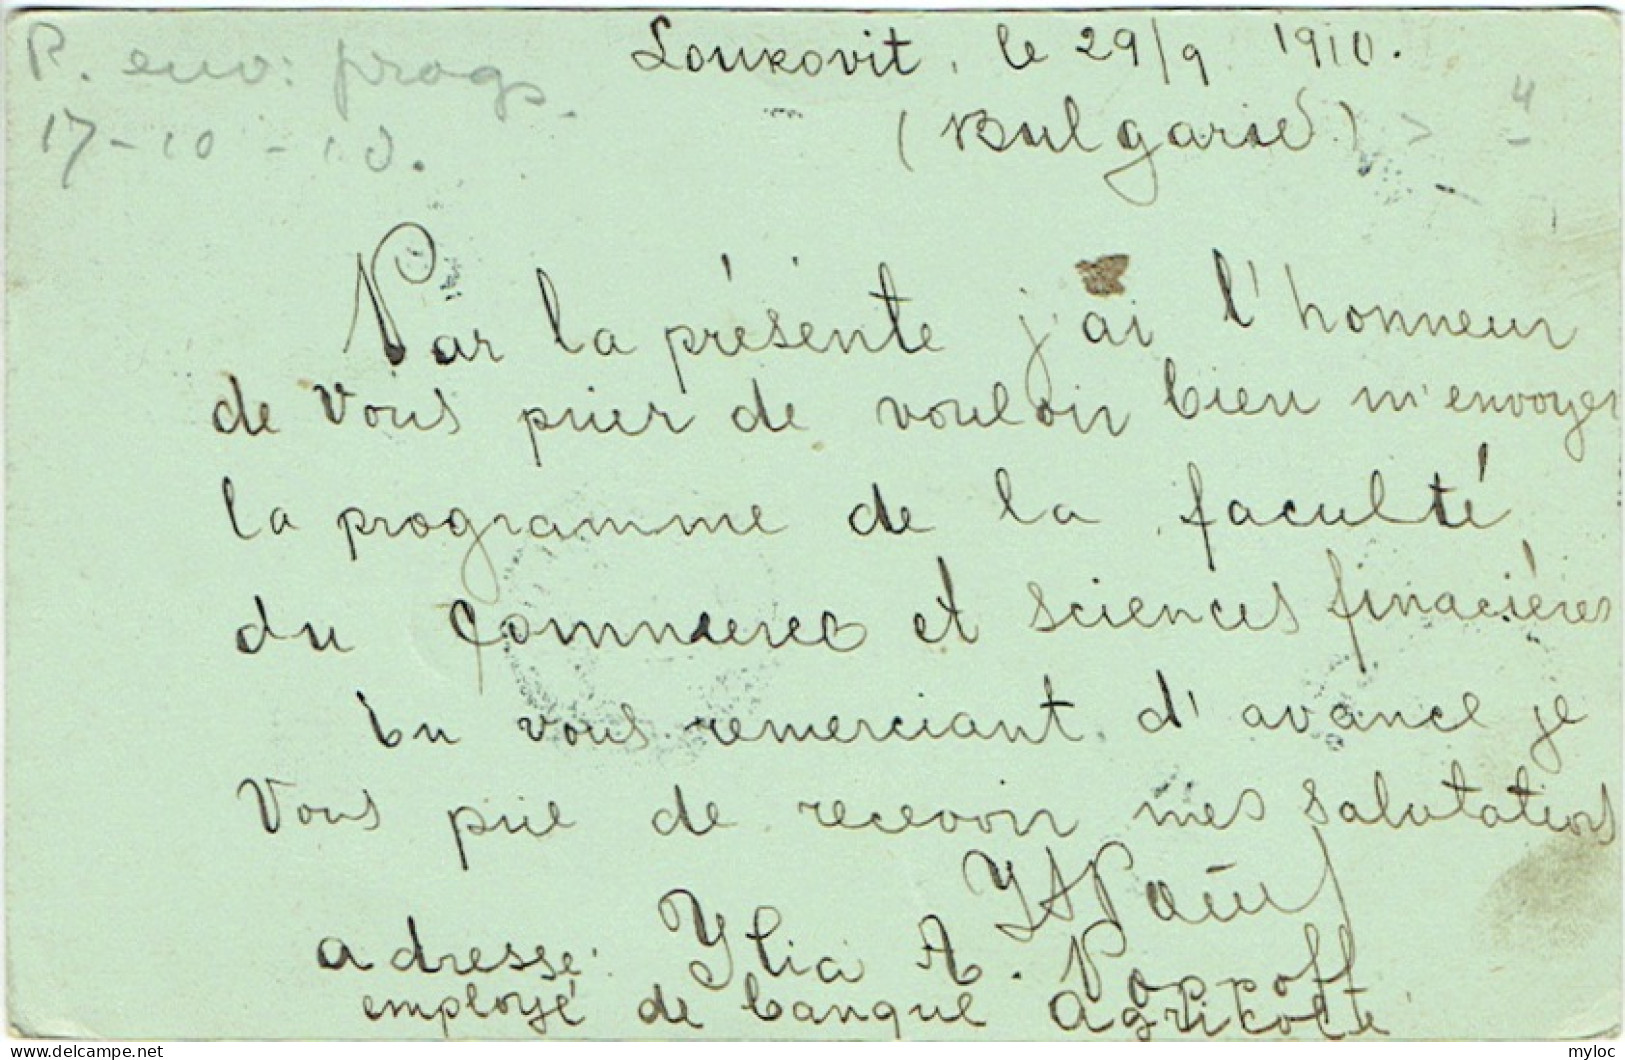 R. env: progr.
17-10-10.
Loukovit, le 29/9 1910.
4
(Bulgarie)
Par la présente j'ai l'honneur
de Vous prier de vouloir bien m'envoyer
la programme de la faculté
du Commerce et sciences finacières
En vous remerciant d'avance je
Vous prie de recevoir mes salutations
adresse: Ylia A. Popoff
employé de banque Agricole
delcampe.net
myloc